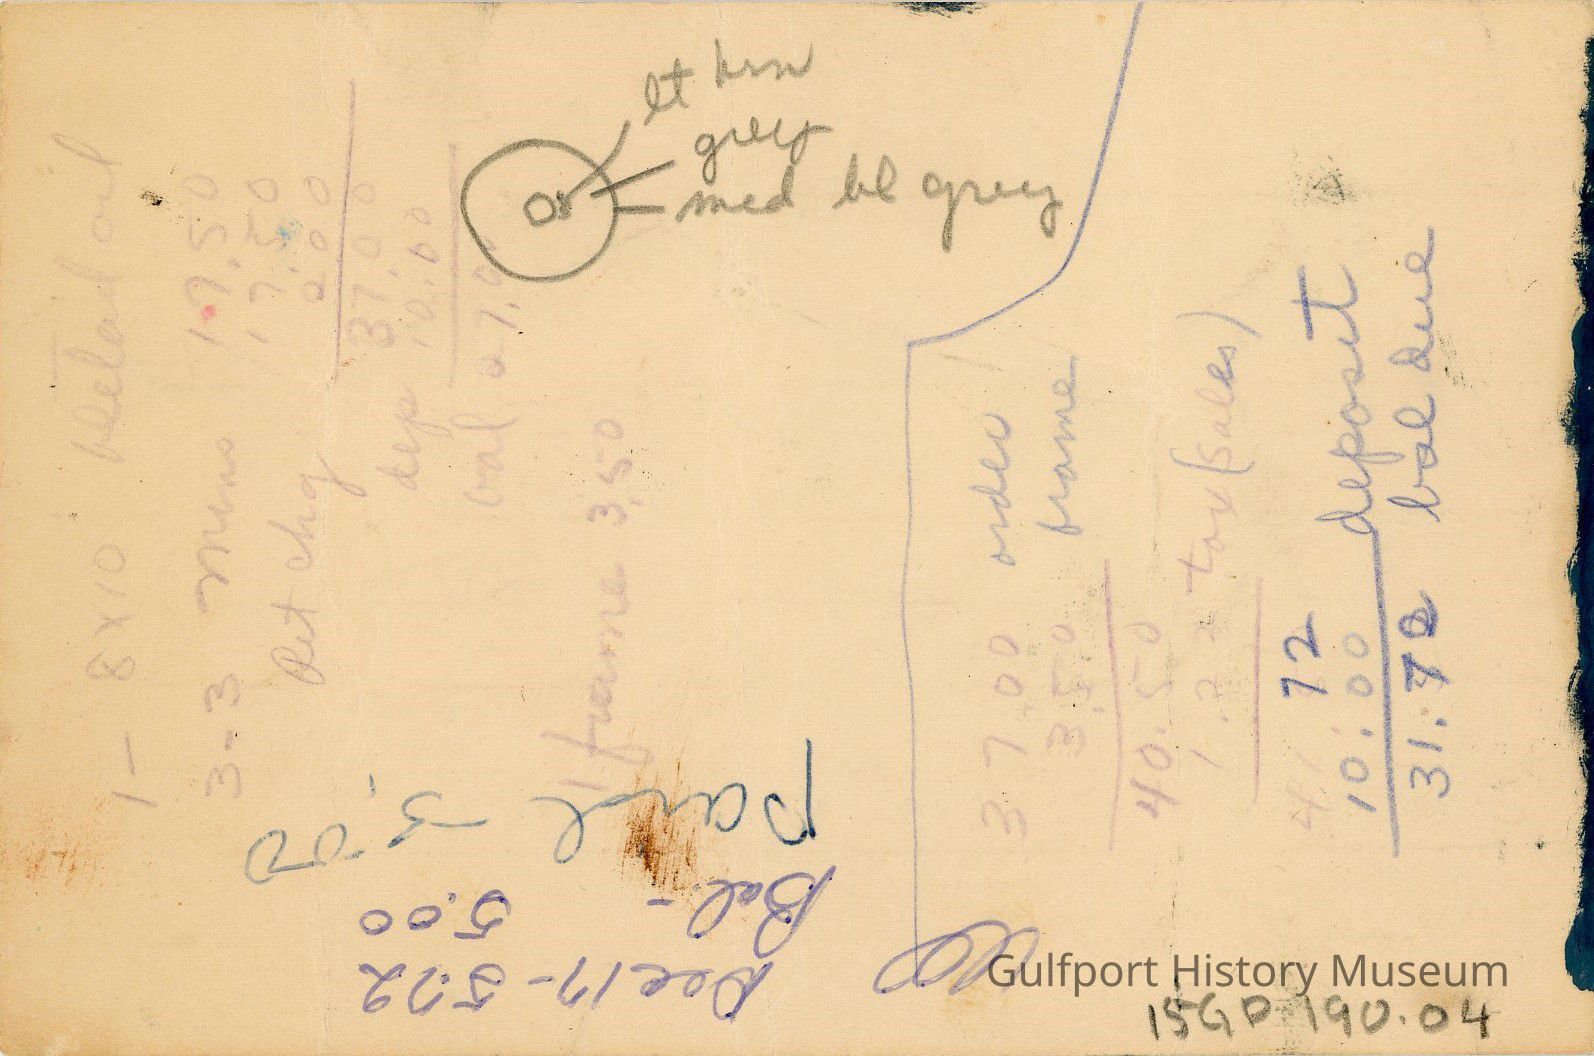 lt brn
grey
med bl grey
1- 8x10 oil
3-3 Min 17.50
17.50
Ret chg 2.00
37.00
dep 10.00
bal 27.00
1 frame 3.50
37.00 order
3.50 frame
40.50
1.22 tax (sales)
41.72
10.00 deposit
31.72 bal due
paid 5.00
Bal. - 5.00
Dec 17 - 5.72
Gulfport History Museum
15GP190.04